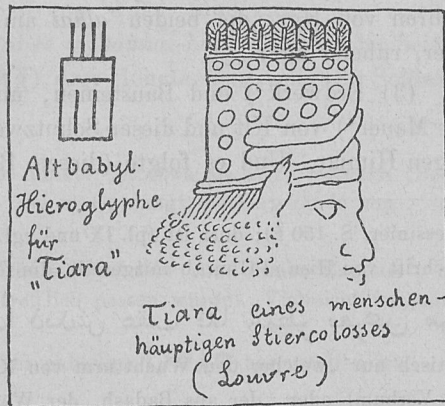 Altbabyl.
Hieroglyphe
für
"Tiara"
Tiara eines menschen-
häuptigen Stiercolosses
(Louvre)